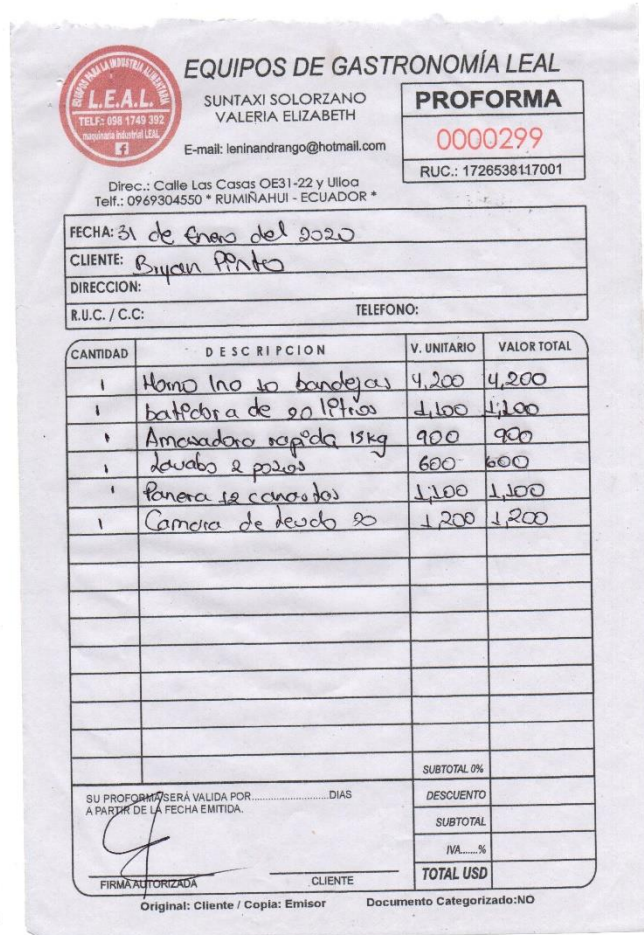 EQUIPOS PARA LA INDUSTRIA ALIMENTARIA
L.E.A.L.
TELF.: 098 1749 392
maquinaria industrial LEAL
f
EQUIPOS DE GASTRONOMÍA LEAL
SUNTAXI SOLORZANO
VALERIA ELIZABETH
E-mail: leninandrango@hotmail.com
PROFORMA
0000299
RUC.: 1726538117001
Direc.: Calle Las Casas OE31-22 y Ulloa
Telf.: 0969304550 * RUMIÑAHUI - ECUADOR *
FECHA: 31 de Enero del 2020
CLIENTE: Bryan Pinto
DIRECCION:
R.U.C. / C.C: TELEFONO:
CANTIDAD DESCRIPCION V. UNITARIO VALOR TOTAL
1 Horno Ino 10 bandejas 4,200 4,200
1 batidora de 20 litros 1,100 1,100
1 Amasadora rapida 15kg 900 900
1 Lavabo 2 pozos 600 600
1 Panera 12 canastos 1,100 1,100
1 Camara de leudo 20 1,200 1,200
SUBTOTAL 0%
SU PROFORMA SERÁ VALIDA POR..............................DIAS
A PARTIR DE LA FECHA EMITIDA.
DESCUENTO
SUBTOTAL
IVA.......%
TOTAL USD
FIRMA AUTORIZADA CLIENTE
Original: Cliente / Copia: Emisor Documento Categorizado:NO